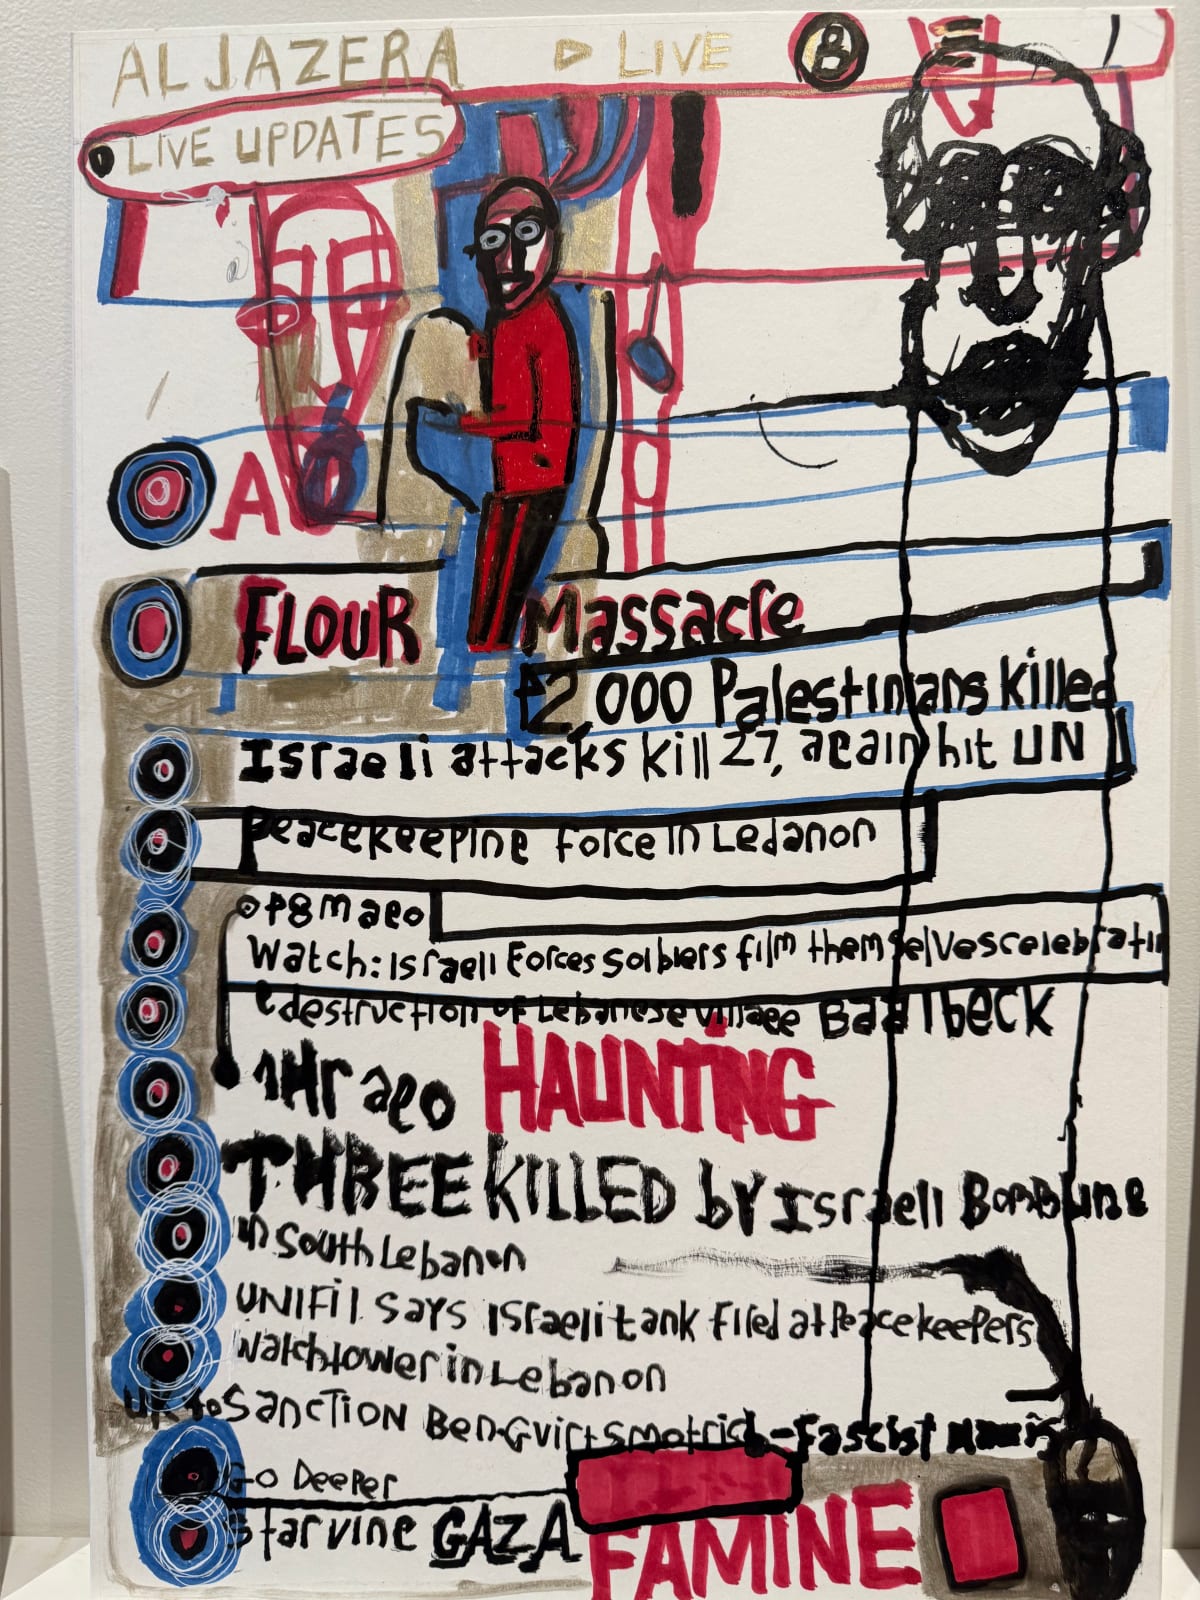 ALJAZERA ▷ LIVE B
LIVE UPDATES
A
FLOUR Massacre
12,000 Palestinians killed
Israeli attacks kill 27, again hit UN
peacekeeping force in Lebanon
8m ago
Watch: Israeli Forces Soldiers film themselves celebratin
destruction of Lebanese village Baalbeck
1Hr ago HAUNTING
THREE KILLED by Israeli Bombing
in South Lebanon
UNIFil says Israeli tank fired at Peacekeepers
Watchtower in Lebanon
UK to SANCTION Ben-Gvir+Smotrich-Fascist
GO DEEPER
Starving GAZA FAMINE